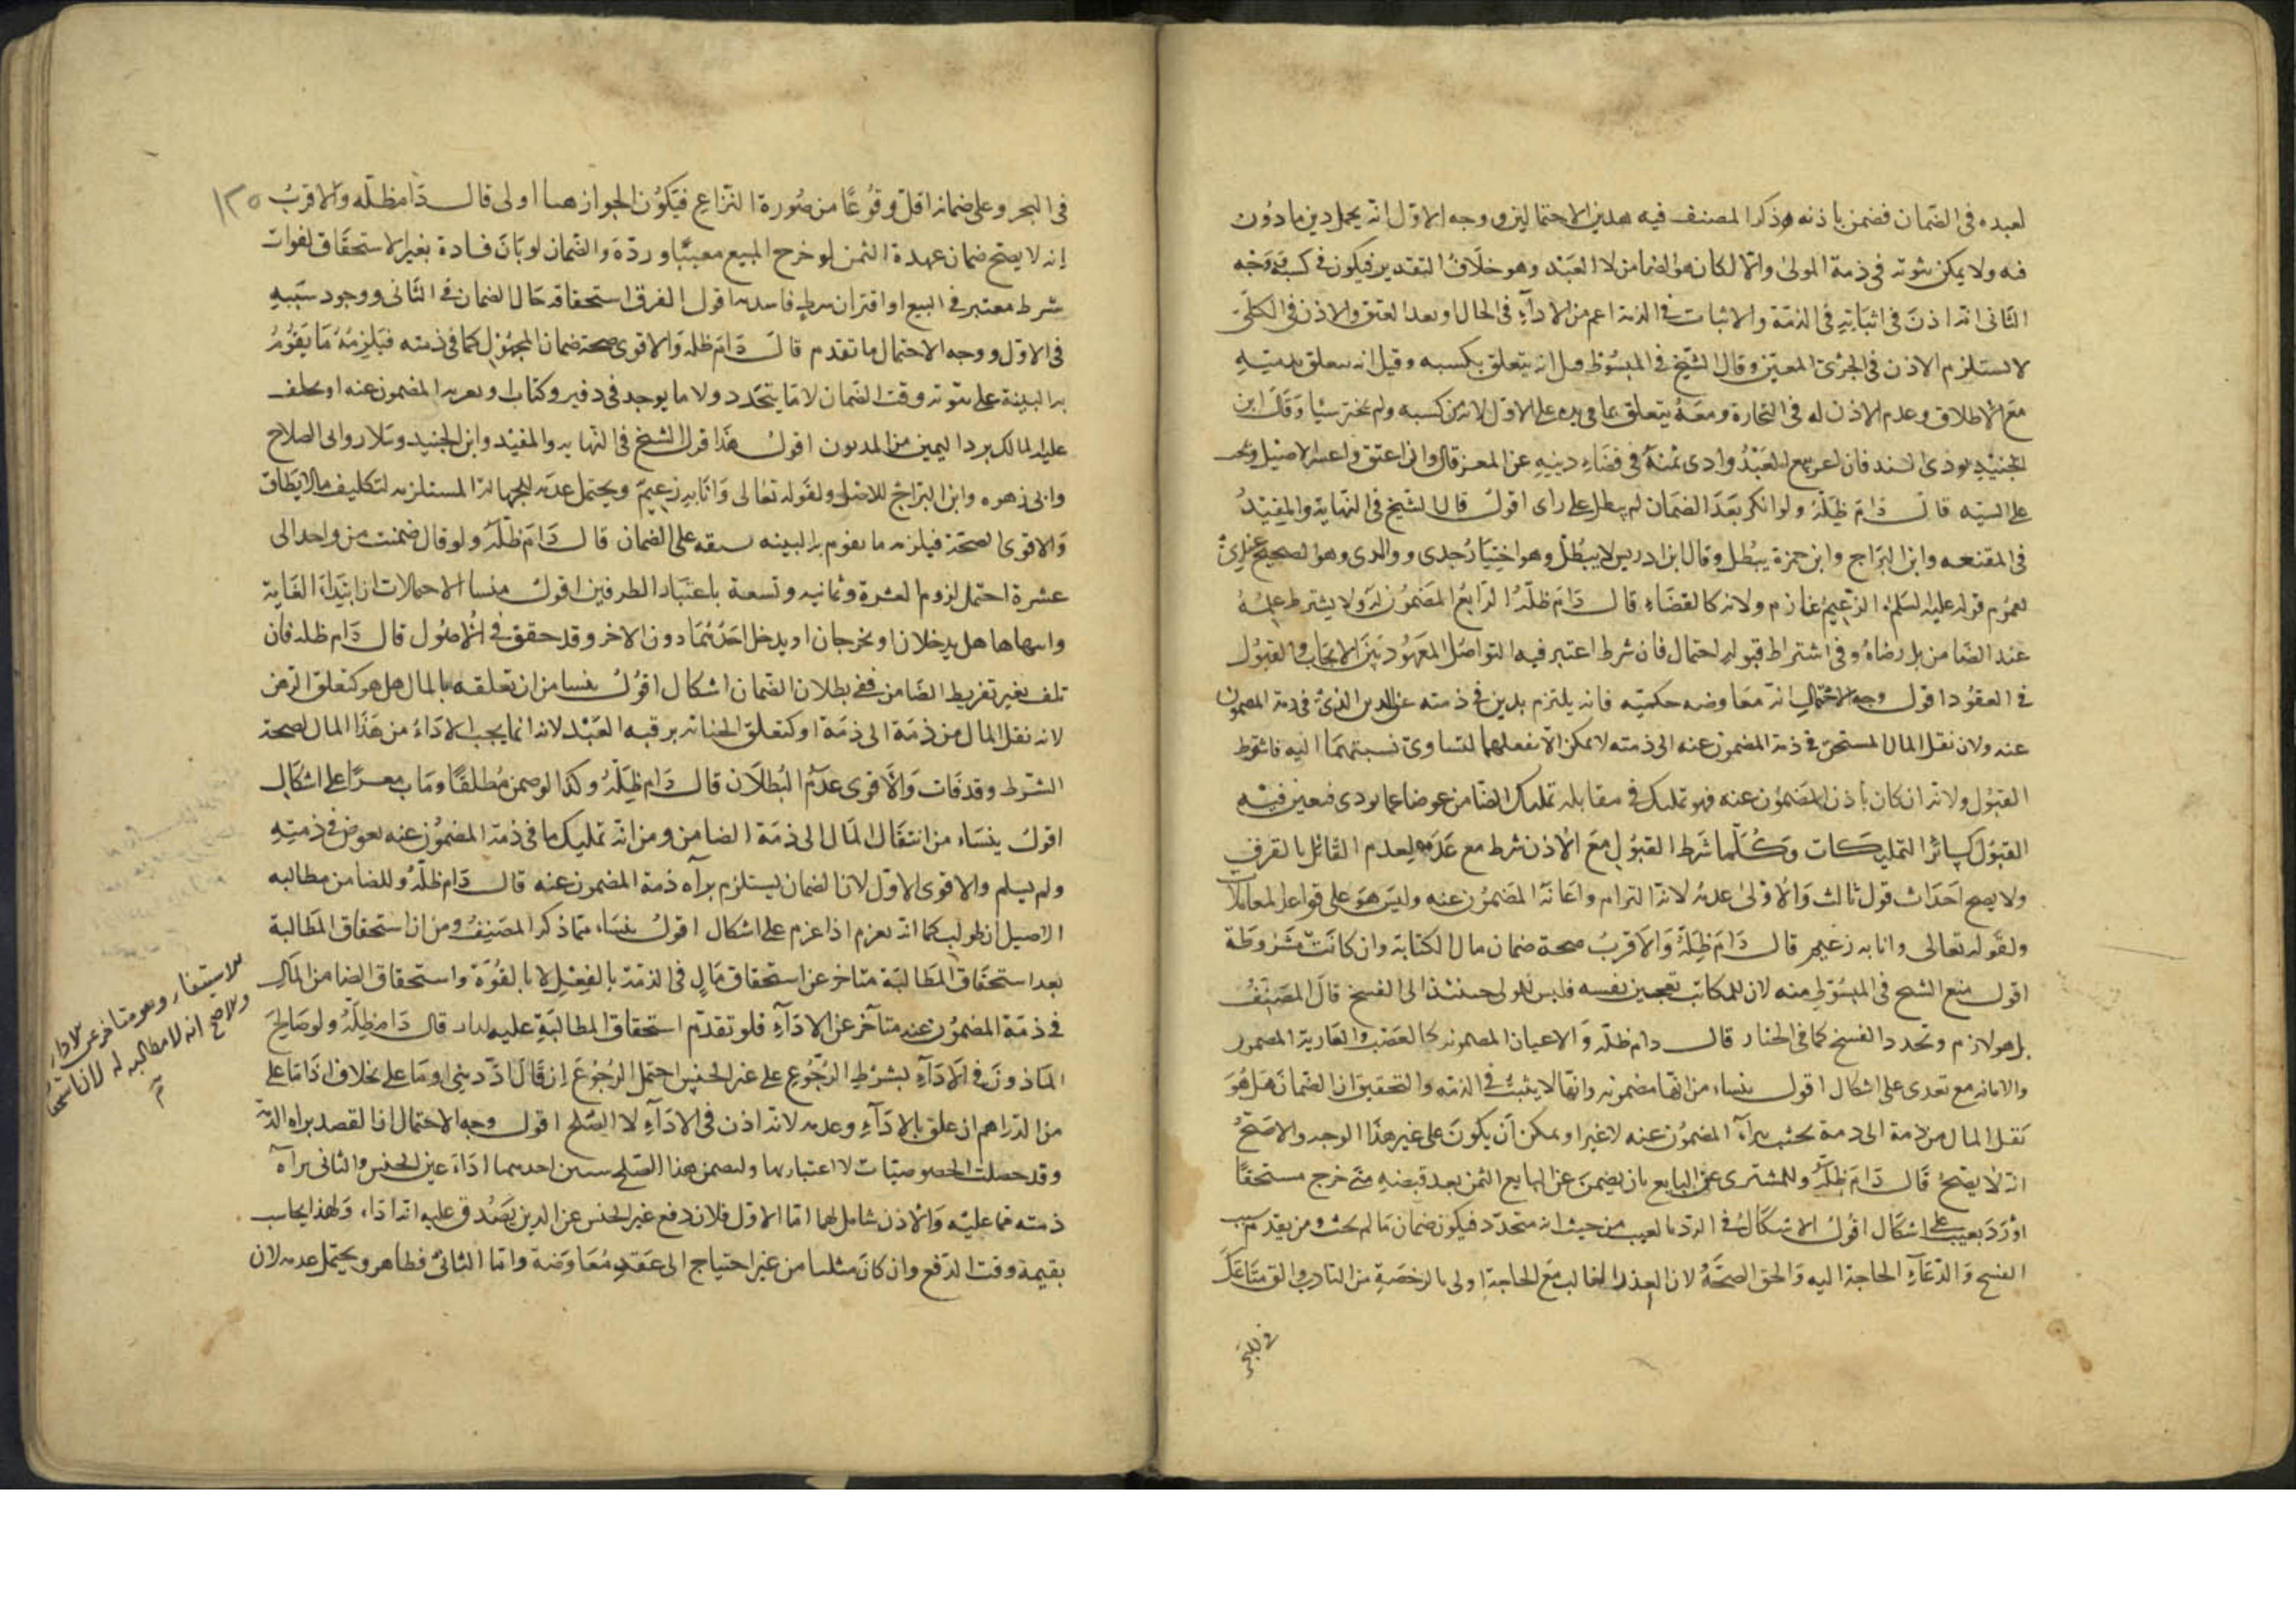 لعبده فى الضمان فضمن باذنه وذكر المصنف فيه هذين الاحتمالين ووجه الاول انه يحمل دين مأذون
فيه ولا يمكن ثبوته فى ذمة المولى والا لكان هو الضامن لا العبد وهو خلاف التقدير فيكون فى كسبه ووجه
الثانى انه اذن فى اثباته فى الذمة والاثبات فى الذمة اعم من الاداء فى الحال او بعد العتق والاذن فى الكلى
لا يستلزم الاذن فى الجزئ المعين وقال الشيخ فى المبسوط قيل انه يتعلق بكسبه وقيل انه يتعلق بذمته
مع الاطلاق وعدم الاذن له فى التجارة ومعه يتعلق بما فى يده على الاول لانه من كسبه ولم يختر شيئا وقال ابن
الجنيد يؤدى السيد فان اعسر بيع العبد وادى ثمنه فى قضاء دينه عن المعسر قال وان اعتق واعسر الاصيل
على السيد قال دام ظله ولو انكر بعد الضمان لم يبطل على راى اقول قال الشيخ فى النهاية والمفيد
فى المقنعه وابن البراج وابن حمزة يبطل وقال ابن ادريس لا يبطل وهو اختيار جدى ووالدى وهو الصحيح عندى
لعموم قوله عليه السلم الزعيم غارم ولانه كالقضاء قال دام ظله الرابع المضمون له ولا يشترط علمه
عند الضامن بل رضاه وفى اشتراط قبوله احتمال فان شرط اعتبر فيه التواصل المعهود بين الايجاب والقبول
فى العقود اقول وجه الاحتمال انه معاوضه حكميه فانه يلتزم بدين فى ذمته عن الدين الذى فى ذمة المضمون
عنه ولان نقل المال المستحق فى ذمة المضمون عنه الى ذمته لا يمكن الا بفعلهما لتساوى نسبتهما اليه فاشترط
القبول ولانه ان كان باذن المضمون عنه فهو تمليك فى مقابله تمليك الضامن عوضا عما يودى فيعتبر فيه
القبول كسائر التمليكات وكلما شرط القبول مع الاذن شرط مع عدمه لعدم القائل بالفرق
ولا يصح احداث قول ثالث والاولى عدمه لانه التزام واعانة المضمون عنه وليس هو على قواعد المعاملات
ولقوله تعالى وانا به زعيم قال دام ظله والاقرب صحة ضمان مال الكتابة وان كانت مشروطة
اقول منع الشيخ فى المبسوط منه لان للمكاتب تعجيز نفسه فليس للمولى حينئذ الا الفسخ قال المصنف
بل هو لازم وتجدد الفسخ كما فى الخيار قال دام ظله والاعيان المضمونه كالغصب والعارية المضمونه
والامانه مع تعدى على اشكال اقول ينشاء من انها مضمونه وانها لا يثبت فى الذمه والتحقيق ان الضمان هل هو
نقل المال من ذمة الى ذمة بحيث يبرآ المضمون عنه لا غير او يمكن ان يكون على غير هذا الوجه والاصح
انه لا يصح قال دام ظله وللمشترى عن البايع بان يضمن عن البايع الثمن بعد قبضه متى خرج مستحقا
او رد بعيب على اشكال اقول الاشكال فى الرد بالعيب من حيث انه متجدد فيكون ضمان ما لم يجب ومن تقدم سبب
الفسخ والدعاء الحاجة اليه والحق الصحة لان العذر الغالب مع الحاجة اولى بالرخصة من النادر والق متاعك
فى البحر
١٣٥
فى البحر وعلى ضمانه اقل وقوعا من صورة النزاع فيكون الجواز هنا اولى قال دام ظله والاقرب
انه لا يصح ضمان عهدة الثمن لو خرج المبيع معيبا ورده والضمان لو بان فساده بغير الاستحقاق لفوات
شرط معتبر فى البيع او اقتران شرط فاسد به اقول الفرق استحقاقه حال الضمان فى الثانى ووجود سببه
فى الاول ووجه الاحتمال ما تقدم قال دام ظله والاقوى صحة ضمان المجهول كما فى ذمته فيلزمه ما يقوم
به البينة على ثبوته وقت الضمان لا ما يتجدد ولا ما يوجد فى دفتر وكتاب او يقر به المضمون عنه او يحلف
عليه المالك برد اليمين من المديون اقول هذا قول الشيخ فى النهايه والمفيد وابن الجنيد وسلار وابى الصلاح
وابى زهره وابن البراج للاصل ولقوله تعالى وانا به زعيم ويحتمل عدمه للجهالة المستلزمه لتكليف ما لا يطاق
والاقوى الصحة فيلزمه ما يقوم به البينه سبقه على الضمان قال دام ظله ولو قال ضمنت من واحد الى
عشرة احتمل لزوم العشرة وثمانيه وتسعة باعتبار الطرفين اقول منشا الاحتمالات ان ابتداء الغاية
وانتهاها هل يدخلان او يخرجان او يدخل احدهما دون الاخر وقد حقق فى الاصول قال دام ظله فان
تلف بغير تفريط الضامن ففى بطلان الضمان اشكال اقول ينشا من ان تعلقه بالمال هل هو كتعلق الرهن
لانه نقل المال من ذمة الى ذمة او كتعلق الجناية برقبه العبد لانه انما يجب الاداء من هذا المال لصحة
الشرط وقد فات والاقوى عدم البطلان قال دام ظله وكذا لو ضمن مطلقا ومات معسرا على اشكال
اقول ينشاء من انتقال المال الى ذمة الضامن ومن انه تمليك ما فى ذمة المضمون عنه بعوض فى ذمته
ولم يسلم والاقوى الاول لان الضمان يستلزم براه ذمة المضمون عنه قال دام ظله وللضامن مطالبه
الاصيل ان طولب كما انه يغرم اذا غرم على اشكال اقول ينشاء مما ذكر المصنف ومن ان استحقاق المطالبة
بعد استحقاق المطالبة متاخر عن استحقاق مال فى الذمة بالفعل لا بالقوة واستحقاق الضامن المال
فى ذمة المضمون عنه متاخر عن الاداء فلو تقدم استحقاق المطالبة عليه لدار قال دام ظله ولو صالح
الماذون فى الاداء بشرط الرجوع على غير الجنس احتمل الرجوع ان قال اد دينى او ما على بخلاف اد ما على
من الدراهم ان علق بالاداء وعدمه لانه اذن فى الاداء لا الصلح اقول وجه الاحتمال ان القصد براه الذمة
وقد حصلت الخصوصيات لا اعتبار بها ولتضمن هذا الصلح شيئين احدهما اداء عين الجنس والثانى براه
ذمته مما عليه والاذن شامل لهما اما الاول فلان دفع غير الجنس عن الدين يصدق عليه انه اداء ولهذا يحاسب
بقيمة وقت الدفع وان كان مثليا من غير احتياج الى عقد معاوضة واما الثانى فظاهر ويحتمل عدمه لان
وهو متاخر عن الاداء
والاصح انه لا مطالبه له